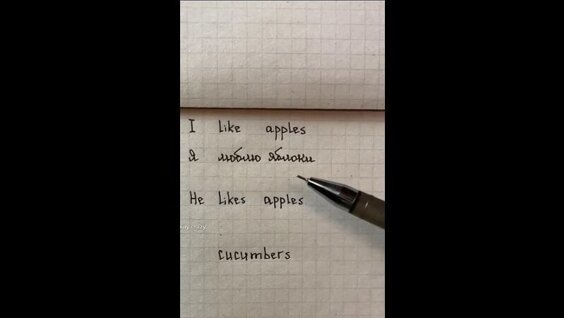 I like apples
Я люблю яблоки
He likes apples
cucumbers